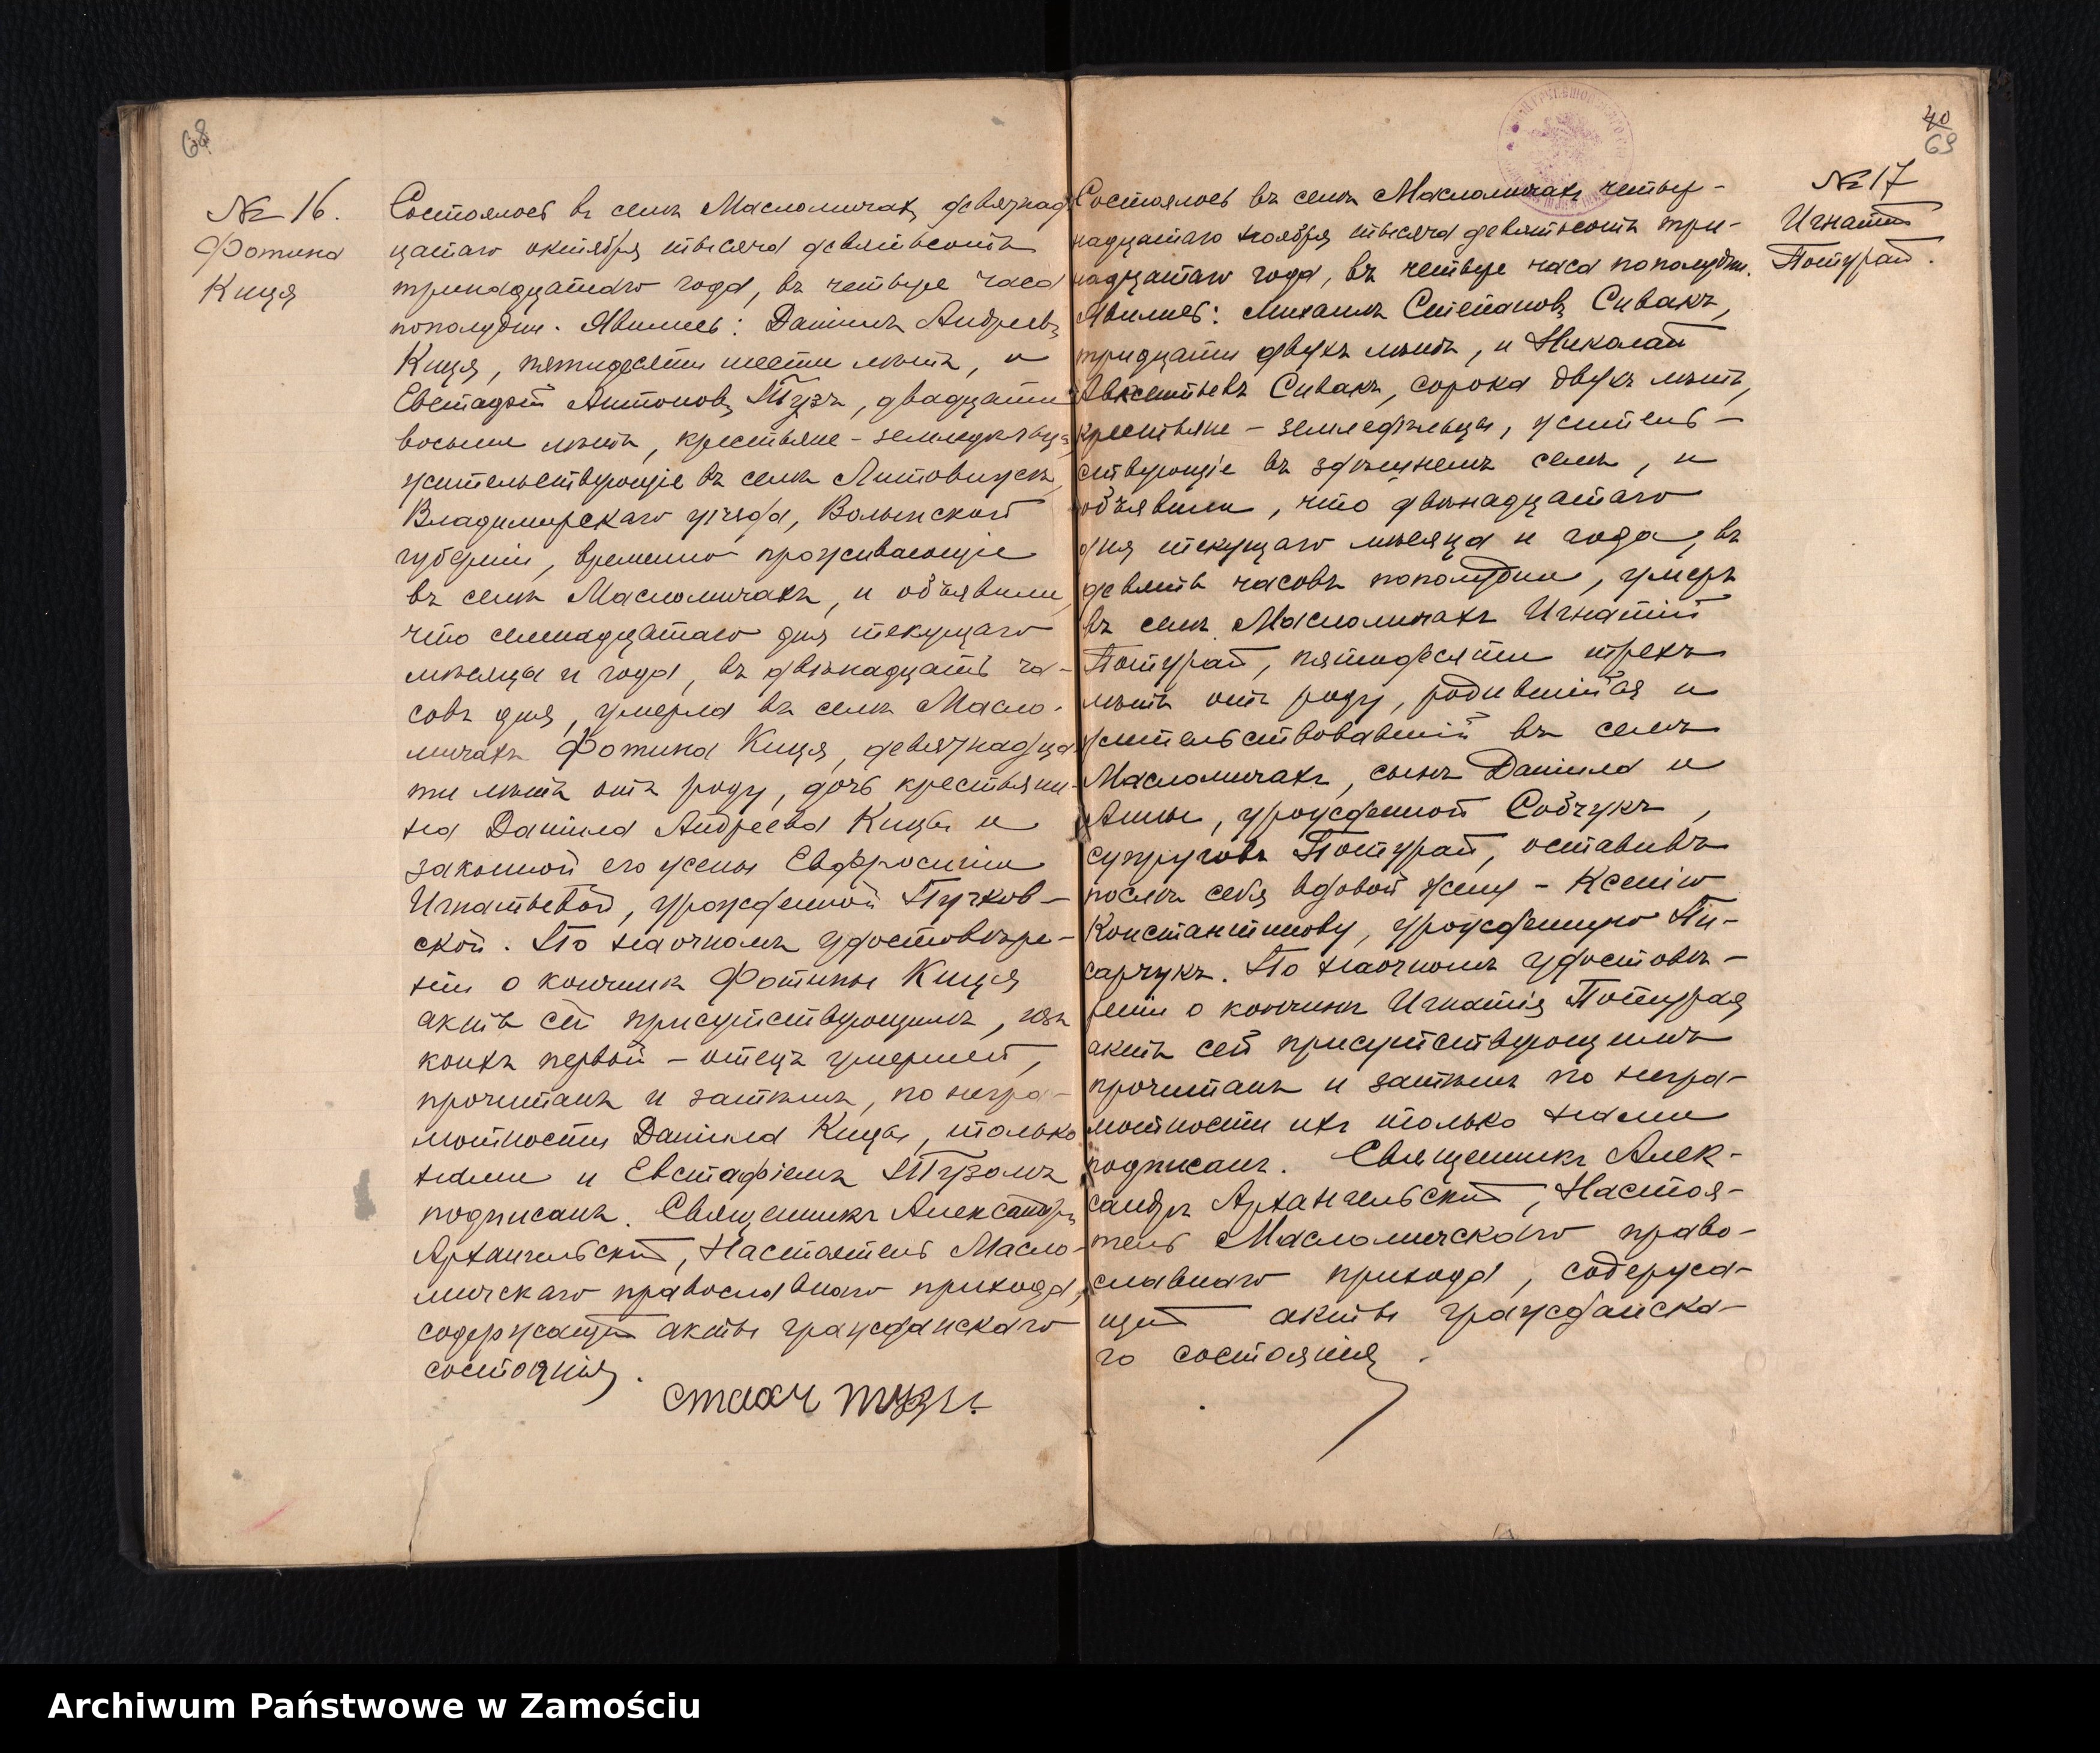 68
№ 16.
Фотина
Киця
Состоялось въ селѣ Масломичахъ девятнад
цатаго октября тысяча девятьсотъ
тринадцатаго года, въ четыре часа
пополудни. Явились: Даніилъ Андреевъ
Киця, пятидесяти шести лѣтъ, и
Евстафій Антоновъ Тузъ, двадцати
восьми лѣтъ, крестьяне-земледѣльцы,
жительствующіе въ селѣ Литовижсѣ,
Владимирскаго уѣзда, Волынской
губерніи, временно проживающіе
въ селѣ Масломичахъ, и объявили,
что семнадцатаго дня текущаго
мѣсяца и года, въ двѣнадцать ча-
совъ дня, умерла въ селѣ Масло-
мичахъ Фотина Киця, девятнадца
ти лѣтъ отъ роду, дочь крестьяни-
на Даніила Андреева Кицы и
законной его жены Евфросиніи
Игнатьевой, урожденной Пучков-
ской. По наочномъ удостовѣре-
ніи о кончинѣ Фотины Кицяя
актъ сей присутствующимъ, изъ
коихъ первой - отецъ умершей,
прочитанъ и затѣмъ, по негра-
мотности Даніила Кицы, только
нами и Евстафіемъ Тузомъ
подписанъ. Священникъ Александръ
Архангельскій, Настоятель Масло-
мичскаго православнаго прихода,
содержащій акты гражданскаго
состоянія.
стахи тузъ.
40
69
№ 17
Игнатій
Потурай.
Состоялось въ селѣ Масломичахъ четыр-
надцатаго ноября тысяча девятьсотъ три-
надцатаго года, въ четыре часа пополудни.
Явились: Михаилъ Степановъ Сивакъ,
тридцати двухъ лѣтъ, и Николай
Авксентьевъ Сивакъ, сорока двухъ лѣтъ,
крестьяне - земледѣльцы, житель-
ствующіе въ здѣшнемъ селѣ, и
объявили, что двѣнадцатаго
дня текущаго мѣсяца и года, въ
девять часовъ пополудни, умеръ
въ селѣ Масломичахъ Игнатій
Потурай, пятидесяти трехъ
лѣтъ отъ роду, родившійся и
жительствовавшій въ селѣ
Масломичахъ, сынъ Даніила и
Анны, урожденной Собчукъ,
супруговъ Потурай, оставивъ
послѣ себя вдовой жену - Ксенію
Константинову, урожденную Пи-
сарчукъ. По наочномъ удостовѣ-
реніи о кончинѣ Игнатія Потурая
актъ сей присутствующимъ
прочитанъ и затѣмъ по негра-
мотности ихъ только нами
подписанъ. Священникъ Алек-
сандръ Архангельскій, Настоя-
тель Масломичскаго право-
славнаго прихода, содержа-
щій акты гражданска-
го состоянія.
Archiwum Państwowe w Zamościu